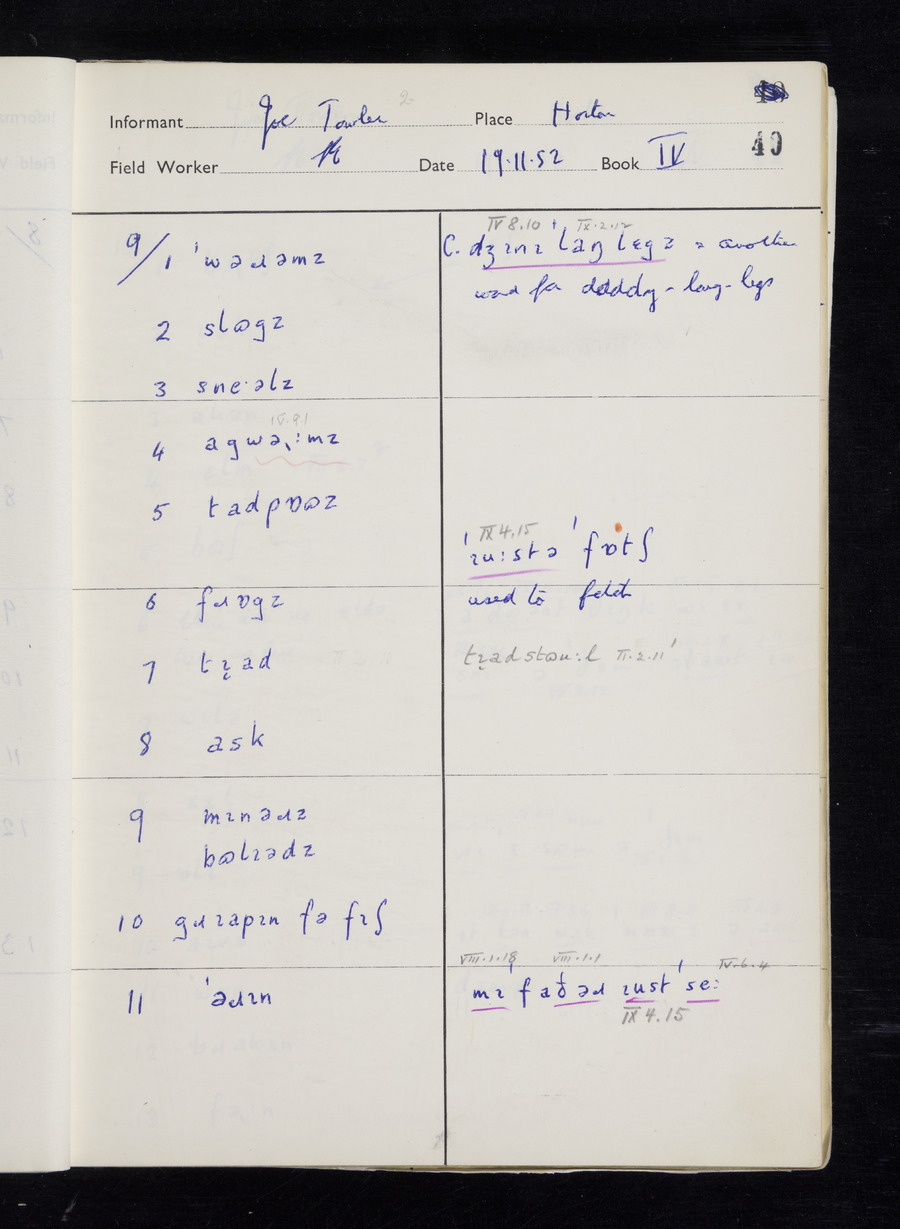 Informant Joe Towler 2 Place Horton
Field Worker Date 19.11.52 Book IV 40
9/1 ˈwəɹəmz
2 slɷgz
3 sne·əlz
IV.9.1
4 agwəːmz
5 tadpɒɷz
6 fɹɒgz
7 tɽad
8 ask
9 mɪnəɹz
bɷlɪədz
10 gɹɪapɪn fə fɪʃ
11 ˈəɹɪn
IV 8.10 + IX.2.12
C. dʒɪnɪ laŋ lɛgz = another
word for daddy-long-legs
IX 4.15
ˈɪuːstə ˈfɒtʃ
used to fetch
tɽadstɷuːl II.2.11
VIII.1.18 VIII.1.1 IV.6.4
mɪ ˈfaðəɹ ɪust ˈseː
IX 4.15